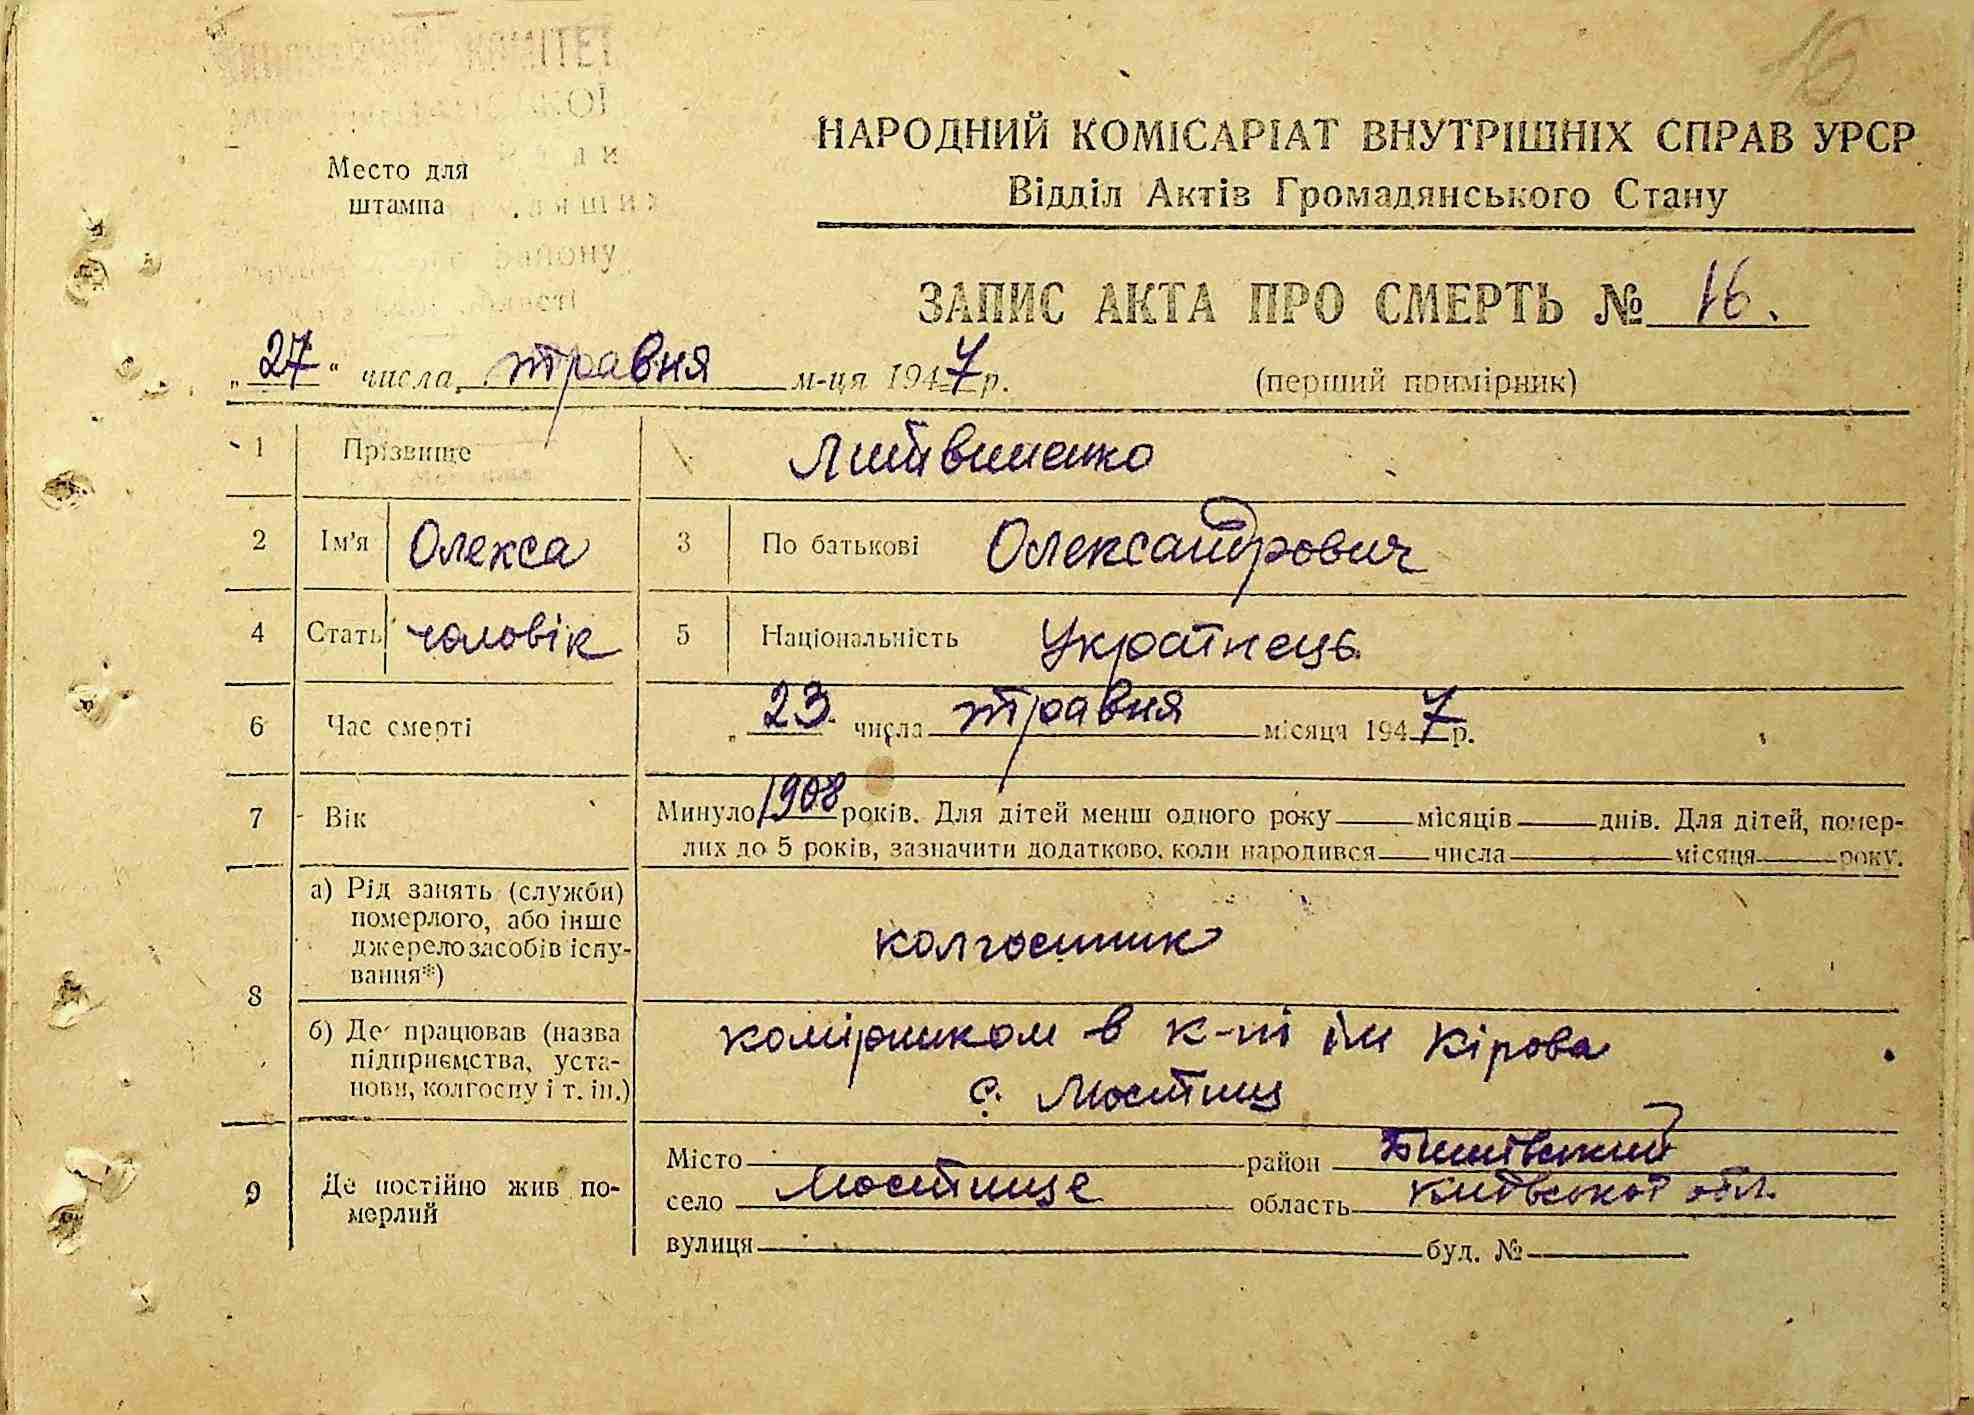 16
КОМІТЕТ
Место для
штампа
району
НАРОДНИЙ КОМІСАРІАТ ВНУТРІШНІХ СПРАВ УРСР
Відділ Актів Громадянського Стану
ЗАПИС АКТА ПРО СМЕРТЬ № 16.
„27“ числа травня м-ця 1947 р.
(перший примірник)
1 Прізвище Литвиненко
2 Ім'я Олекса 3 По батькові Олександрович
4 Стать чоловік 5 Національність Українець
6 Час смерті „23 числа травня місяця 1947 р.
7 Вік Минуло 1908 років. Для дітей менш одного року місяців днів. Для дітей, помер-
лих до 5 років, зазначити додатково, коли народився числа місяця року.
8 а) Рід занять (служби)
померлого, або інше
джерело засобів існу-
вання*)
колгоспник
б) Де працював (назва
підприємства, уста-
нови, колгоспу і т. ін.)
комірником в к-пі ім Кірова
с. Мостищ
9 Де постійно жив по-
мерлий
Місто район
село Мостище область Київської обл.
вулиця буд. №